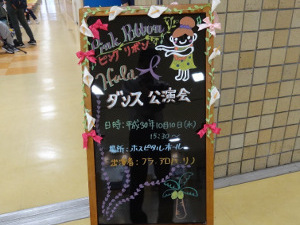 Pink Ribbon
ピンクリボン
Hula
ダンス公演会
日時：平成30年10月10日(水)
15:30〜
場所：ホスピタルホール
出演者：フラ・アロハ